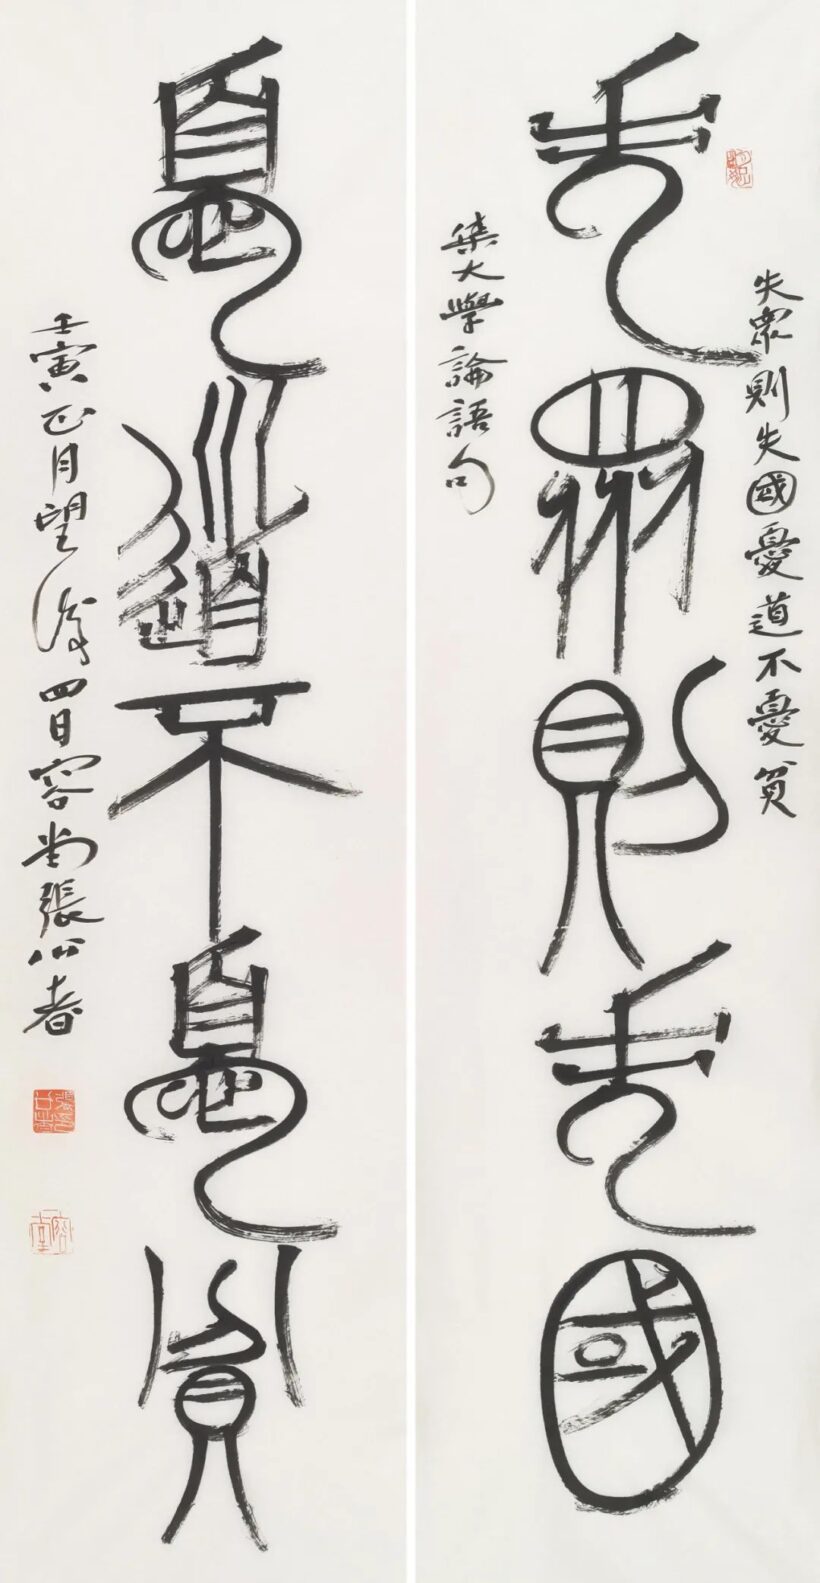 失眾則失國憂道不憂貧
失眾則失國
集大學論語句
憂道不憂貧
壬寅正月望後四日容堂張公者
容堂